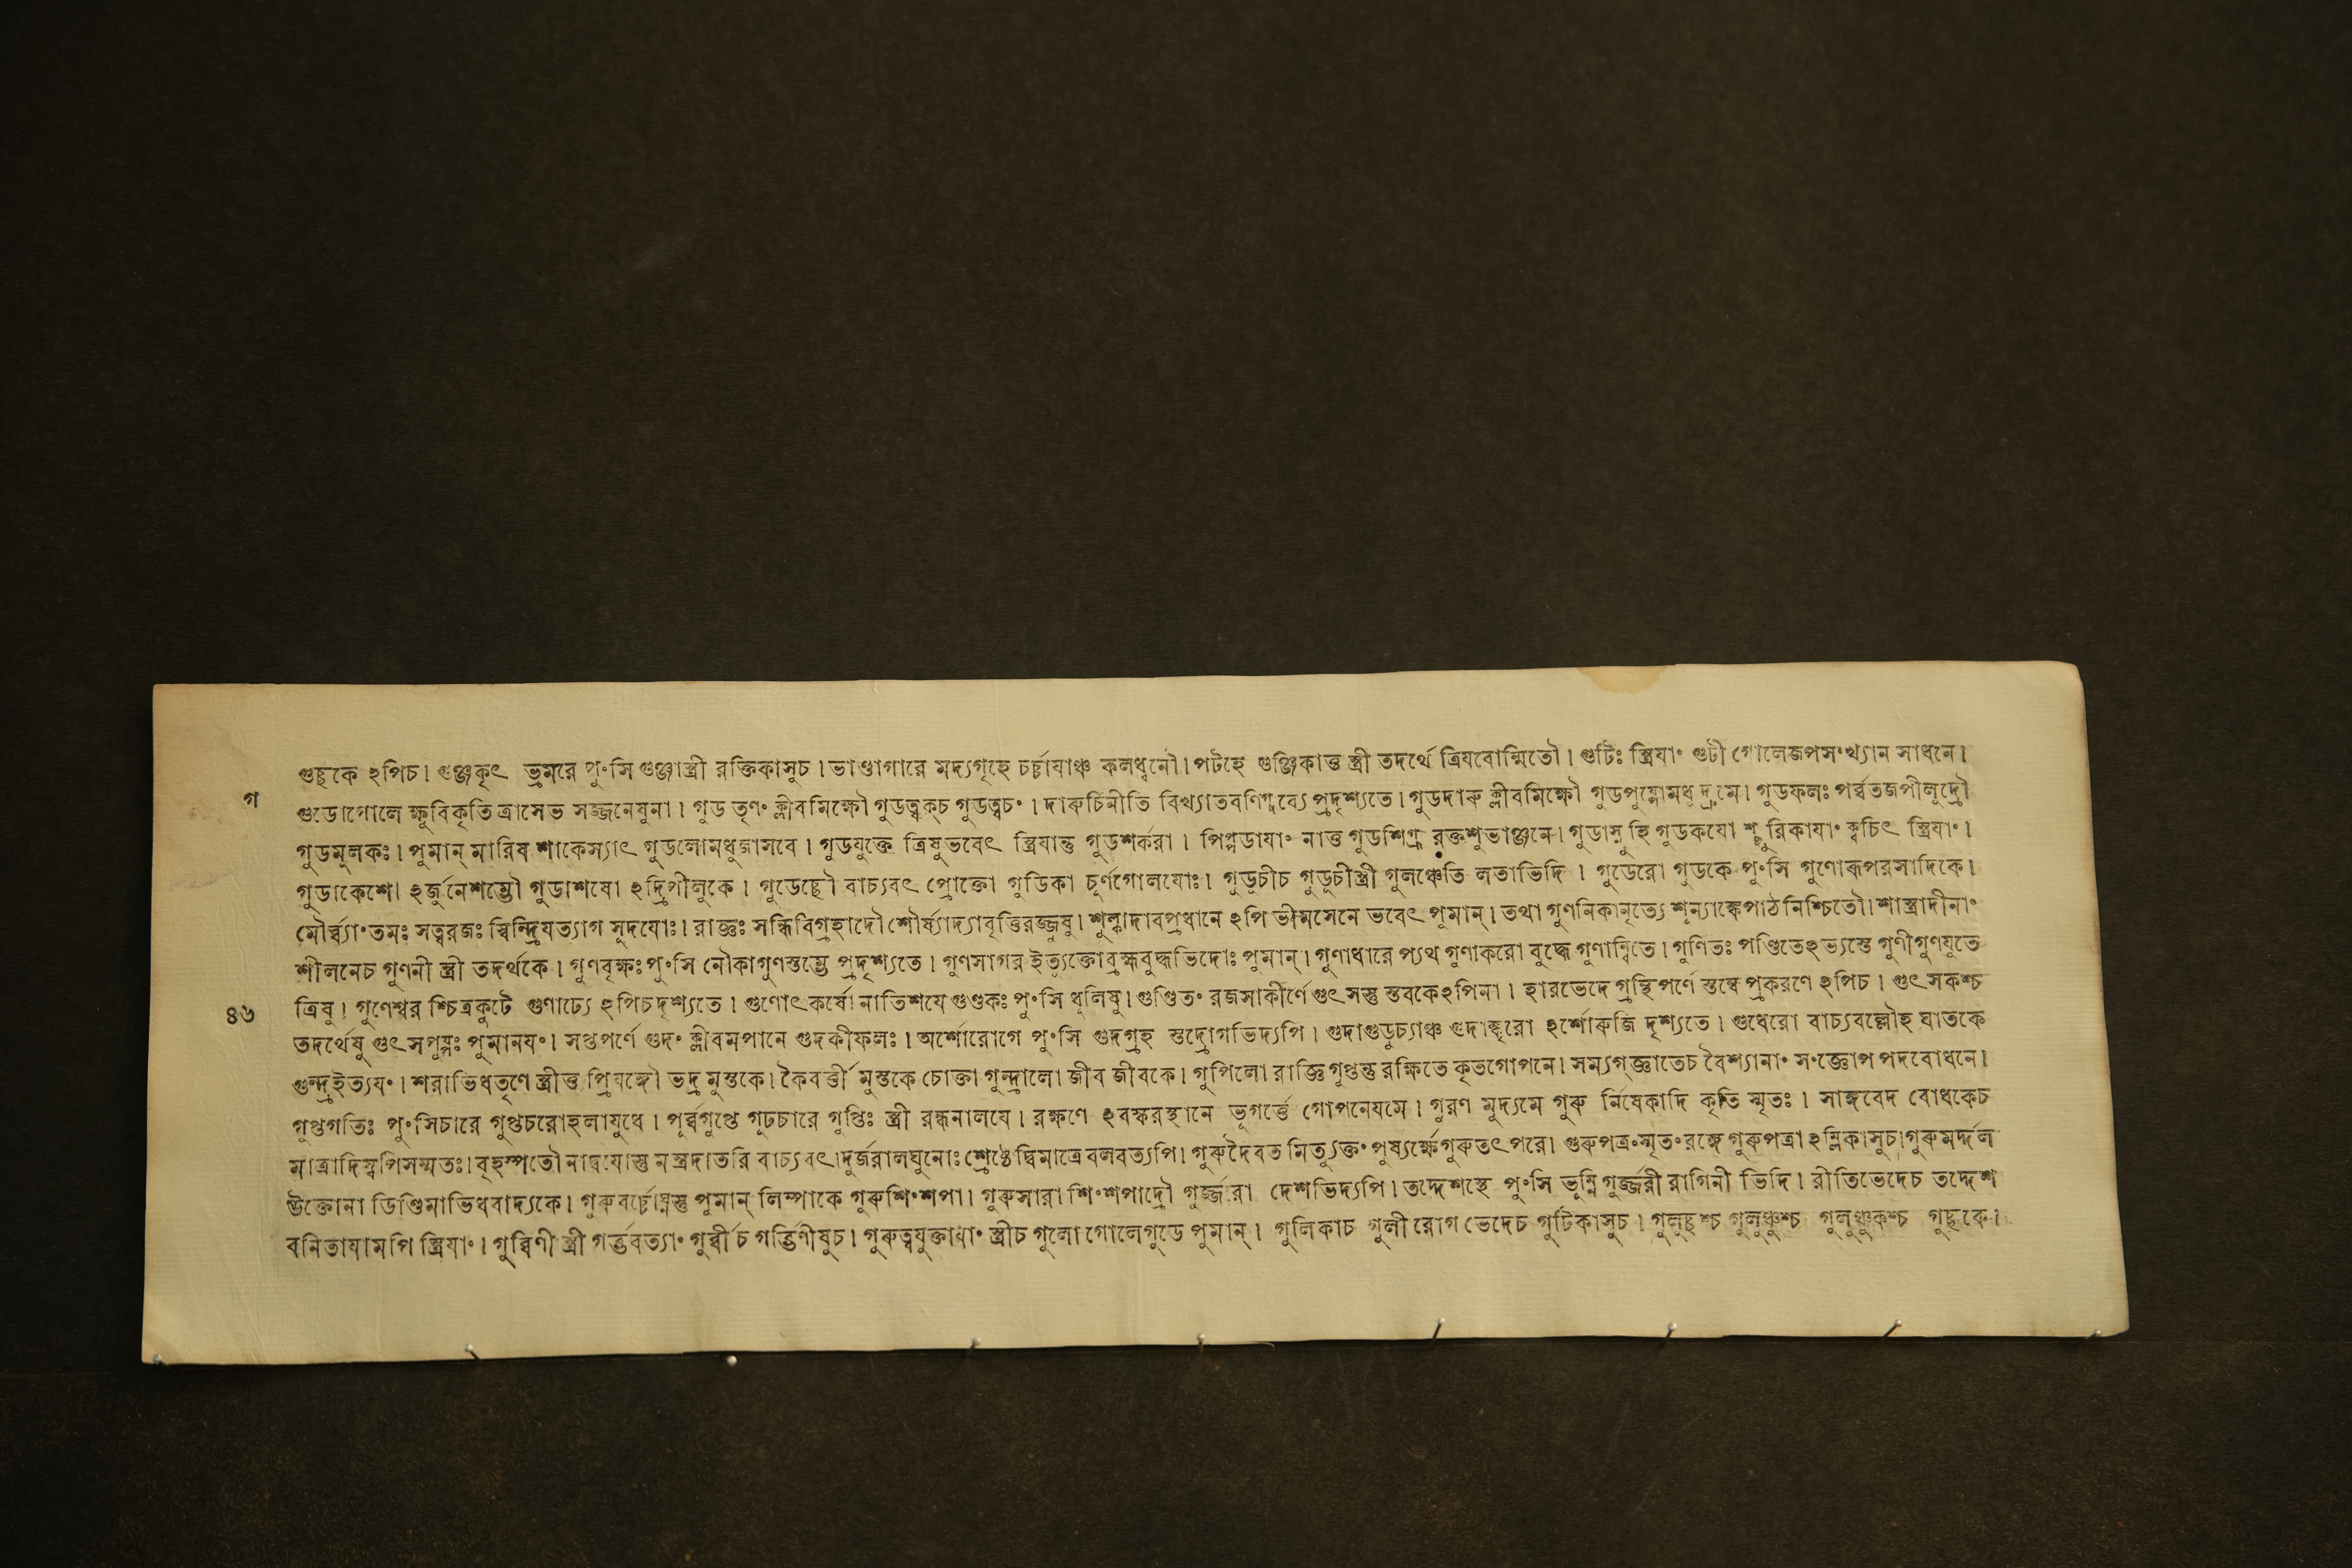 গুচ্ছকে ঽপিচ। গুঞ্জকৃৎ ভ্রমরে পুংসি গুঞ্জাস্ত্রী রক্তিকাসুচ। ভাণ্ডাগারে মদ্যগৃহে চর্চ্চাযাঞ্চ কলধ্বনৌ। পটহে গুঞ্জিকাত্ত স্ত্রী তদর্থে ত্রিযবোন্মিতৌ। গুটিঃ স্ত্রিযাং গুটী গোলেজপসংখ্যান সাধনে।
গ
গুডোগোলে ক্ষূবিকৃতি ত্রাসেভ সজ্জনেষুনা। গুড তৃণং ক্লীবমিক্ষৌ গুডত্বক্চ গুডত্বচং। দারুচিনীতি বিখ্যাতবণিগ্দ্রব্যে প্রদৃশ্যতে। গুডদারু ক্লীবমিক্ষৌ গুডপুষ্পোমধু দ্রুমে। গুডফলঃ পর্ব্বতজপীলুদ্রৌ
গুডমূলকঃ। পুমান্ মারিষ শাকেস্যাৎ গুডলোমধুজাসবে। গুডযুক্তে ত্রিষুভবেৎ স্ত্রিযান্তু গুডশর্করা। পিণ্নডাযাং নাত্ত গুডশিগ্রূ রক্তশুভাঞ্জনে। গুডাস্নুহি গুডকযো শ্ছুরিকাযাং ক্বচিৎ স্ত্রিযাং।
গুডাকেশো ঽর্জুনেশম্ভৌ গুডাশযো ঽদ্রিপীলুকে। গুডেচ্ছৌ বাচ্যবৎ প্রোক্তো গুডিকা চূর্ণগোলযোঃ। গুডূচীচ গুডূচীস্ত্রী গুলঞ্চেতি লতাভিদি। গুডেরো গুডকে পুংসি গুণোরূপরসাদিকে।
মৌর্ব্ব্যাং তমঃ সত্বরজঃ স্বিন্দ্রিযত্যাগ সূদযোঃ। রাজ্ঞঃ সন্ধিবিগ্রহাদৌ শৌর্য্যাদ্যাবৃত্তিরজ্জুষু। শূল্কাদাবপ্রধানে ঽপি ভীমসেনে ভবেৎ পুমান্। তথা গুণনিকানৃত্যে শূন্যাঙ্কেপাঠ নিশ্চিতৌ। শাস্ত্রাদীনাং
শীলনেচ গুণনী স্ত্রী তদর্থকে। গুণবৃক্ষঃ পুংসি নৌকাগুণস্তম্ভে প্রদৃশ্যতে। গুণসাগর ইত্যুক্তোব্রহ্মবুদ্ধভিদোঃ পুমান্। গুণাধারে প্যথ গুণাকরো বুদ্ধে গুণান্বিতে। গুণিতঃ পণ্ডিতেঽভ্যস্তে গুণীগুণযুতে
৪৬
ত্রিষু। গুণেশ্বর শ্চিত্রকুটে গুণাঢ্যে ঽপিচদৃশ্যতে। গুণোৎকর্ষো নাতিশযে গুণ্ডকঃ পুংসি ধূলিষু। গুণ্ডিতং রজসাকীর্ণে গুৎসস্তু স্তবকেঽপিনা। হারভেদে গ্রন্থিপর্ণে স্তম্বে প্রকরণে ঽপিচ। গুৎসকশ্চ
তদর্থেষু গুৎসপুষ্পঃ পুমানযং। সপ্তপর্ণে গুদং ক্লীবমপানে গুদকীফলঃ। অর্শোরোগে পুংসি গুদগ্রহ স্তদ্রোগভিদ্যপি। গুদাগুডূচ্যাঞ্চ গুদাঙ্কুরো ঽর্শোরুজি দৃশ্যতে। গুধেরো বাচ্যবল্লৌহ ঘাতকে
গুন্দ্রইত্যযং। শরাভিধতৃণে স্ত্রীত্ত প্রিযঙ্গৌ ভদ্র মুস্তকে। কৈবর্ত্তী মুস্তকে চোক্তা গুন্দ্রালো জীব জীবকে। গুপিলো রাজ্ঞি গুপ্তন্তু রক্ষিতে কৃতগোপনে। সম্যগ্জ্ঞাতেচ বৈশ্যানাং সংজ্ঞোপ পদবোধনে।
গুপ্তগতিঃ পুংসিচারে গুপ্তচরোহলাযুধে। পূর্ব্বগুপ্তে গূঢচারে গুপ্তিঃ স্ত্রী রন্ধনালযে। রক্ষণে ঽবস্করস্থানে ভূগর্ত্তে গোপনেযমে। গুরণ মুদ্যমে গুরু র্নিষেকাদি কৃতি স্মৃতঃ। সাঙ্গবেদ বোধকেচ
মাত্রাদিস্বপিসম্মতঃ। বৃহস্পতৌ নাদ্বযোস্তু মন্ত্রদাতরি বাচ্যবৎ। দুর্জরালঘুনোঃ শ্রেষ্ঠে দ্বিমাত্রে বলবত্যপি। গুরুদৈবত মিত্যুক্তং পুষ্যর্ক্ষে গুরুতৎপরে। গুরুপত্রং স্মৃতং রঙ্গে গুরুপত্রা ঽম্লিকাসুচ। গুরুমর্দ্দল
উক্তোনা ডিণ্ডিমাভিধবাদ্যকে। গুরুবর্চ্চোঘ্নস্তু পুমান্ লিম্পাকে গুরুশিংশপা। গুরুসারা শিংশপাদ্রৌ গুর্জ্জরা দেশভিদ্যপি। তদ্দেশস্থে পুংসি ভুম্নি গুর্জ্জরী রাগিনী ভিদি। রীতিভেদেচ তদ্দেশ
বনিতাযামপি স্ত্রিযাং। গুর্ব্বিণী স্ত্রী গর্ব্ভবত্যাং গুর্ব্বীচ গর্ব্ভিণীষুচ। গুরুত্বযুক্তাযাং স্ত্রীচ গুলো গোলেগুডে পুমান্। গুলিকাচ গুলী রোগ ভেদেচ গুটিকাসুচ। গুলুচ্ছশ্চ গুলুঞ্ছশ্চ গুলুঞ্ছকশ্চ গুচ্ছকে।